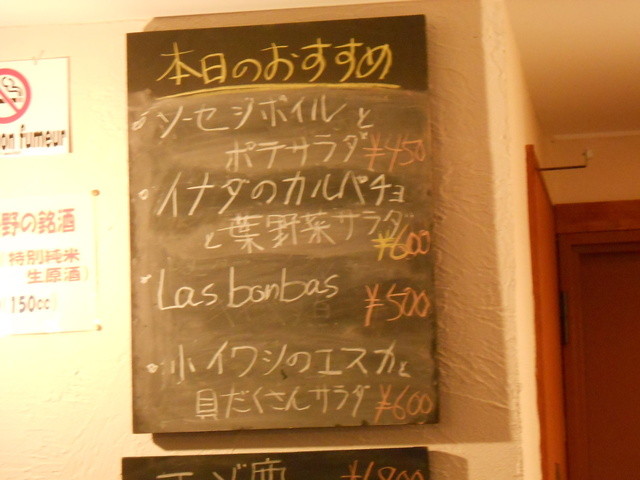 本日のおすすめ
ソーセジボイルと
ポテサラダ ¥450
イナダのカルパチョ
と葉野菜サラダ
¥600
Las bombas
¥500
小イワシのエスカと
具だくさんサラダ ¥600
エゾ鹿 ¥1,800
on fumeur
野の銘酒
特別純米
生原酒)
150cc)